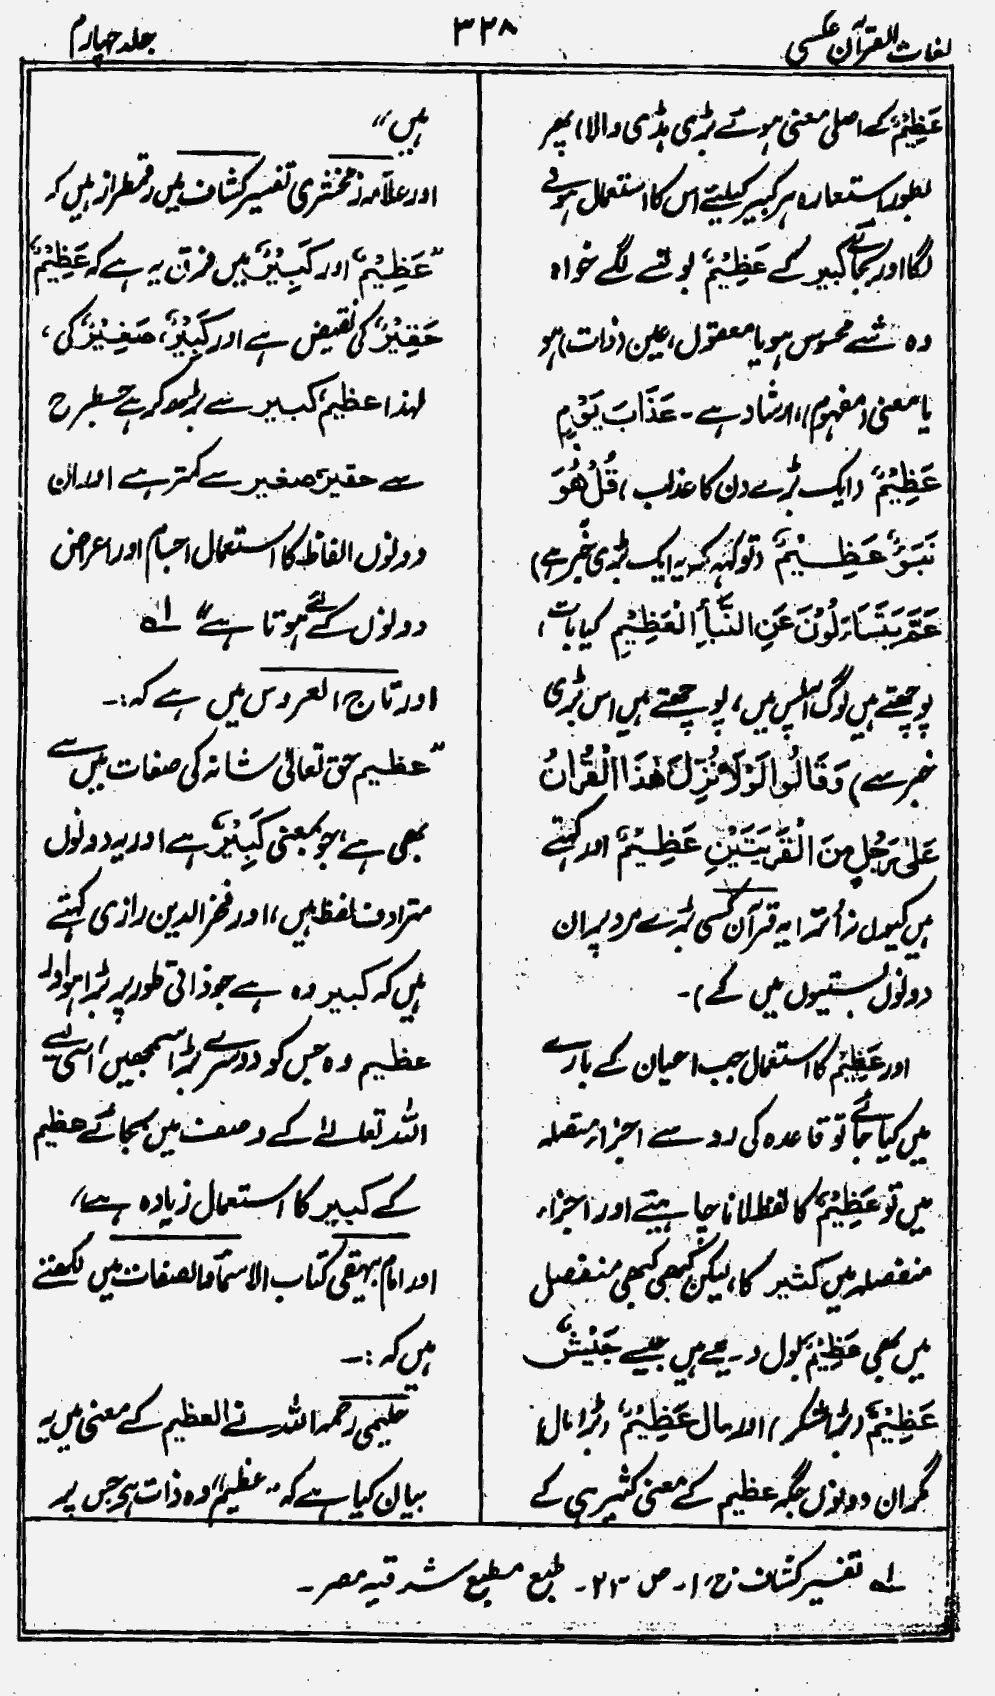 لغات القرآن عکسی
۳۲۸
جلد چہارم
عَظِیْمٌ کے اصلی معنی ہوئے بڑی ہڈی والا، پھر
بطور استعارہ ہر کبیر کیلئے اس کا استعمال ہونے
لگا اور بجائے کبیر کے عَظِیْمٌ بولنے لگے خواہ
وہ شے محسوس ہو یا معقول، عین (ذات) ہو
یا معنی (مفہوم)، ارشاد ہے۔ عَذَابَ یَوْمٍ
عَظِیْمٍ (ایک بڑے دن کا عذاب) قُلْ هُوَ
نَبَؤٌ عَظِیْمٌ (تو کہہ کہ یہ ایک بڑی خبر ہے)
عَمَّ یَتَسَاءَلُوْنَ عَنِ النَّبَاِ الْعَظِیْمِ (کیا بات
پوچھتے ہیں لوگ آپس میں، پوچھتے ہیں اس بڑی
خبر سے) وَقَالُوا لَوْلَا نُزِّلَ هٰذَا الْقُرْاٰنُ
عَلٰی رَجُلٍ مِنَ الْقَرْیَتَیْنِ عَظِیْمٍ (اور کہتے
ہیں کیوں نہ اُترا یہ قرآن کسی بڑے مرد پر ان
دونوں بستیوں میں کے)۔
اور عَظِیْمٌ کا استعمال جب اعیان کے بارے
میں کیا جائے تو قاعدہ کی رو سے اجزاء متصلہ
میں تو عَظِیْمٌ کا لفظ لانا چاہیئے اور اجزاء
منفصلہ میں کثیر کا، لیکن کبھی کبھی منفصل
میں بھی عَظِیْمٌ بول دیتے ہیں جیسے جَیْشٌ
عَظِیْمٌ (بڑا لشکر) اور مال عَظِیْمٌ (بڑا مال)
مگر ان دونوں جگہ عظیم کے معنی کثیر ہی کے
ہیں ״
اور علامہ زمخشری تفسیر کشاف میں رقمطراز ہیں کہ
״عَظِیْمٌ اور کَبِیْرٌ میں فرق یہ ہے کہ عَظِیْمٌ
حَقِیْرٌ کی نقیض ہے اور کَبِیْرٌ، صَغِیْرٌ کی،
لہذا عظیم کبیر سے بڑھ کر ہے جسطرح
سے حقیر صغیر سے کمتر ہے اور ان
دونوں الفاظ کا استعمال اجسام اور اعراض
دونوں کے لئے ہوتا ہے״ لہ
اور تاج العروس میں ہے کہ:۔
״عظیم حق تعالیٰ شانہ کی صفات میں سے
بھی ہے، جو بمعنی کَبِیْرٌ ہے اور یہ دونوں
مترادف لفظ ہیں، اور فخر الدین رازی کہتے
ہیں کہ کبیر وہ ہے جو ذاتی طور پر بڑا ہو اور
عظیم وہ جس کو دوسرے بڑا سمجھیں، اسی لیے
اللہ تعالےٰ کے وصف میں بجائے عظیم
کے کبیر کا استعمال زیادہ ہے״
اور امام بیہقی کتاب الاسماء والصفات میں لکھتے
ہیں کہ:۔
حلیمی رحمہ اللہ نے العظیم کے معنی میں یہ
بیان کیا ہے کہ ״عظیم״ وہ ذات ہے جس پر
لہ تفسیر کشاف ج ۱۔ ص ۲۳۔ طبع مطبع شرقیہ مصر۔